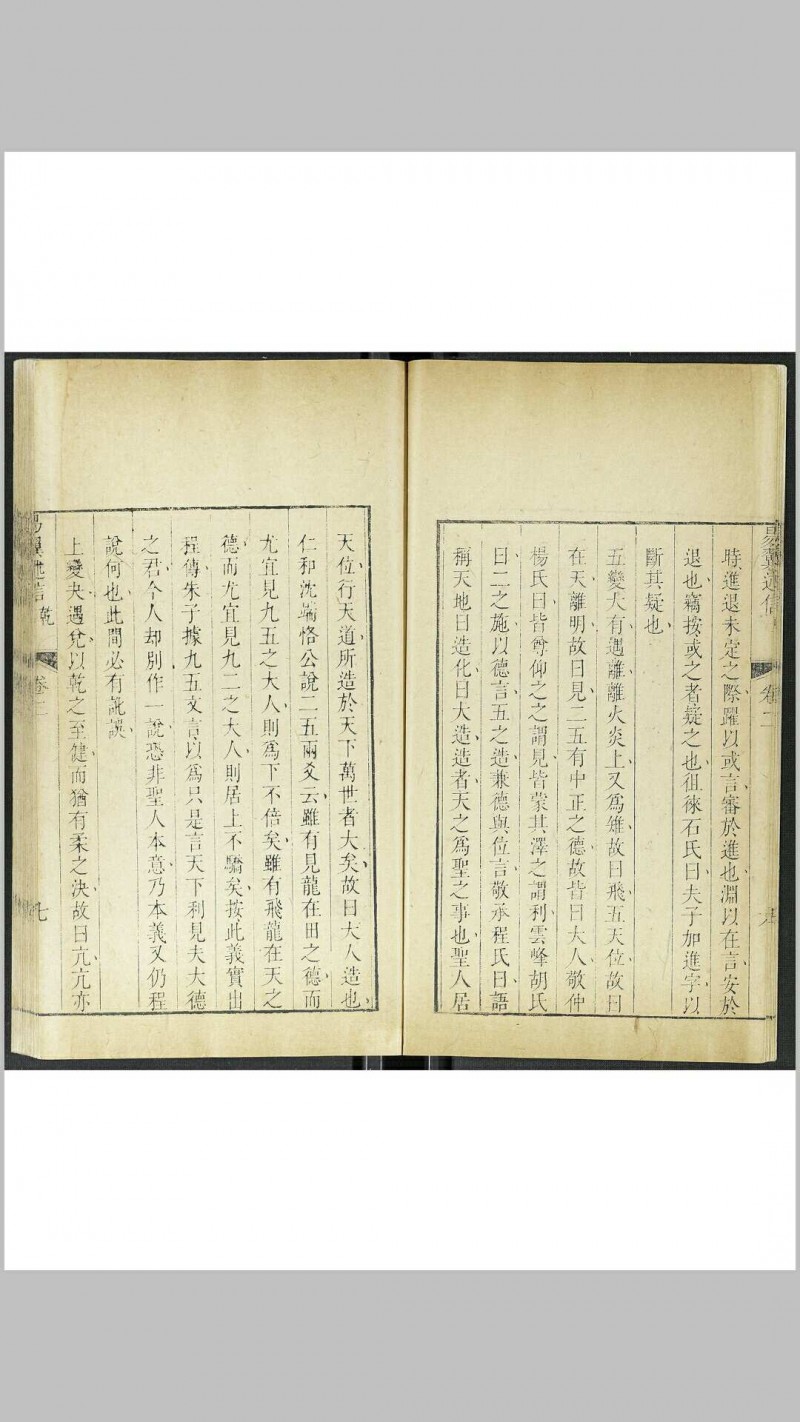 時、進退未定之際、躍以或言、審於進也、淵以在言、安於
退也、竊按或之者疑之也、徂徠石氏曰夫子加進字以
斷其疑也、
五變大有遇離、離火炎上、又爲雉故曰飛、五天位故曰
在天、離明故曰見、二五有中正之德故皆曰大人、敬仲
楊氏曰皆尊仰之之謂見、皆蒙其澤之謂利、雲峰胡氏
曰、二之施以德言、五之造、兼德與位言、敬承程氏曰、語
稱天地曰造化曰大造、造者天之爲聖之事也、聖人居
天位、行天道、所造於天下萬世者大矣、故曰大人造也、
仁和沈端恪公說二五兩爻云、雖有見龍在田之德、而
尤宜見九五之大人、則爲下不倍矣、雖有飛龍在天之
德、而尤宜見九二之大人、則居上不驕矣、按此義實出
程傳、朱子據九五文言以爲只是言天下利見夫大德
之君、今人却別作一說、恐非聖人本意、乃本義又仍程
說何也、此間必有訛誤、
上變夬、遇兌、以乾之至健而猶有柔之決、故曰亢、亢亦
易翼述信 乾 卷二 七